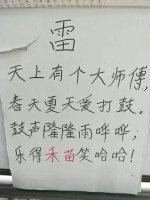 雷
天上有个大师傅,
春天夏天爱打鼓。
鼓声隆隆雨哗哗;
乐得禾苗笑哈哈!